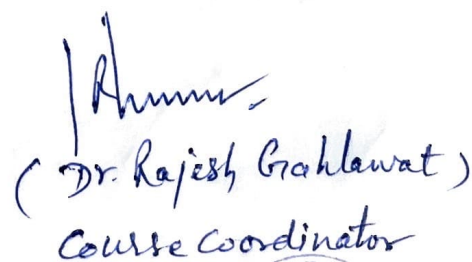 ( Dr. Rajesh Grahlawat )
Course Coordinator